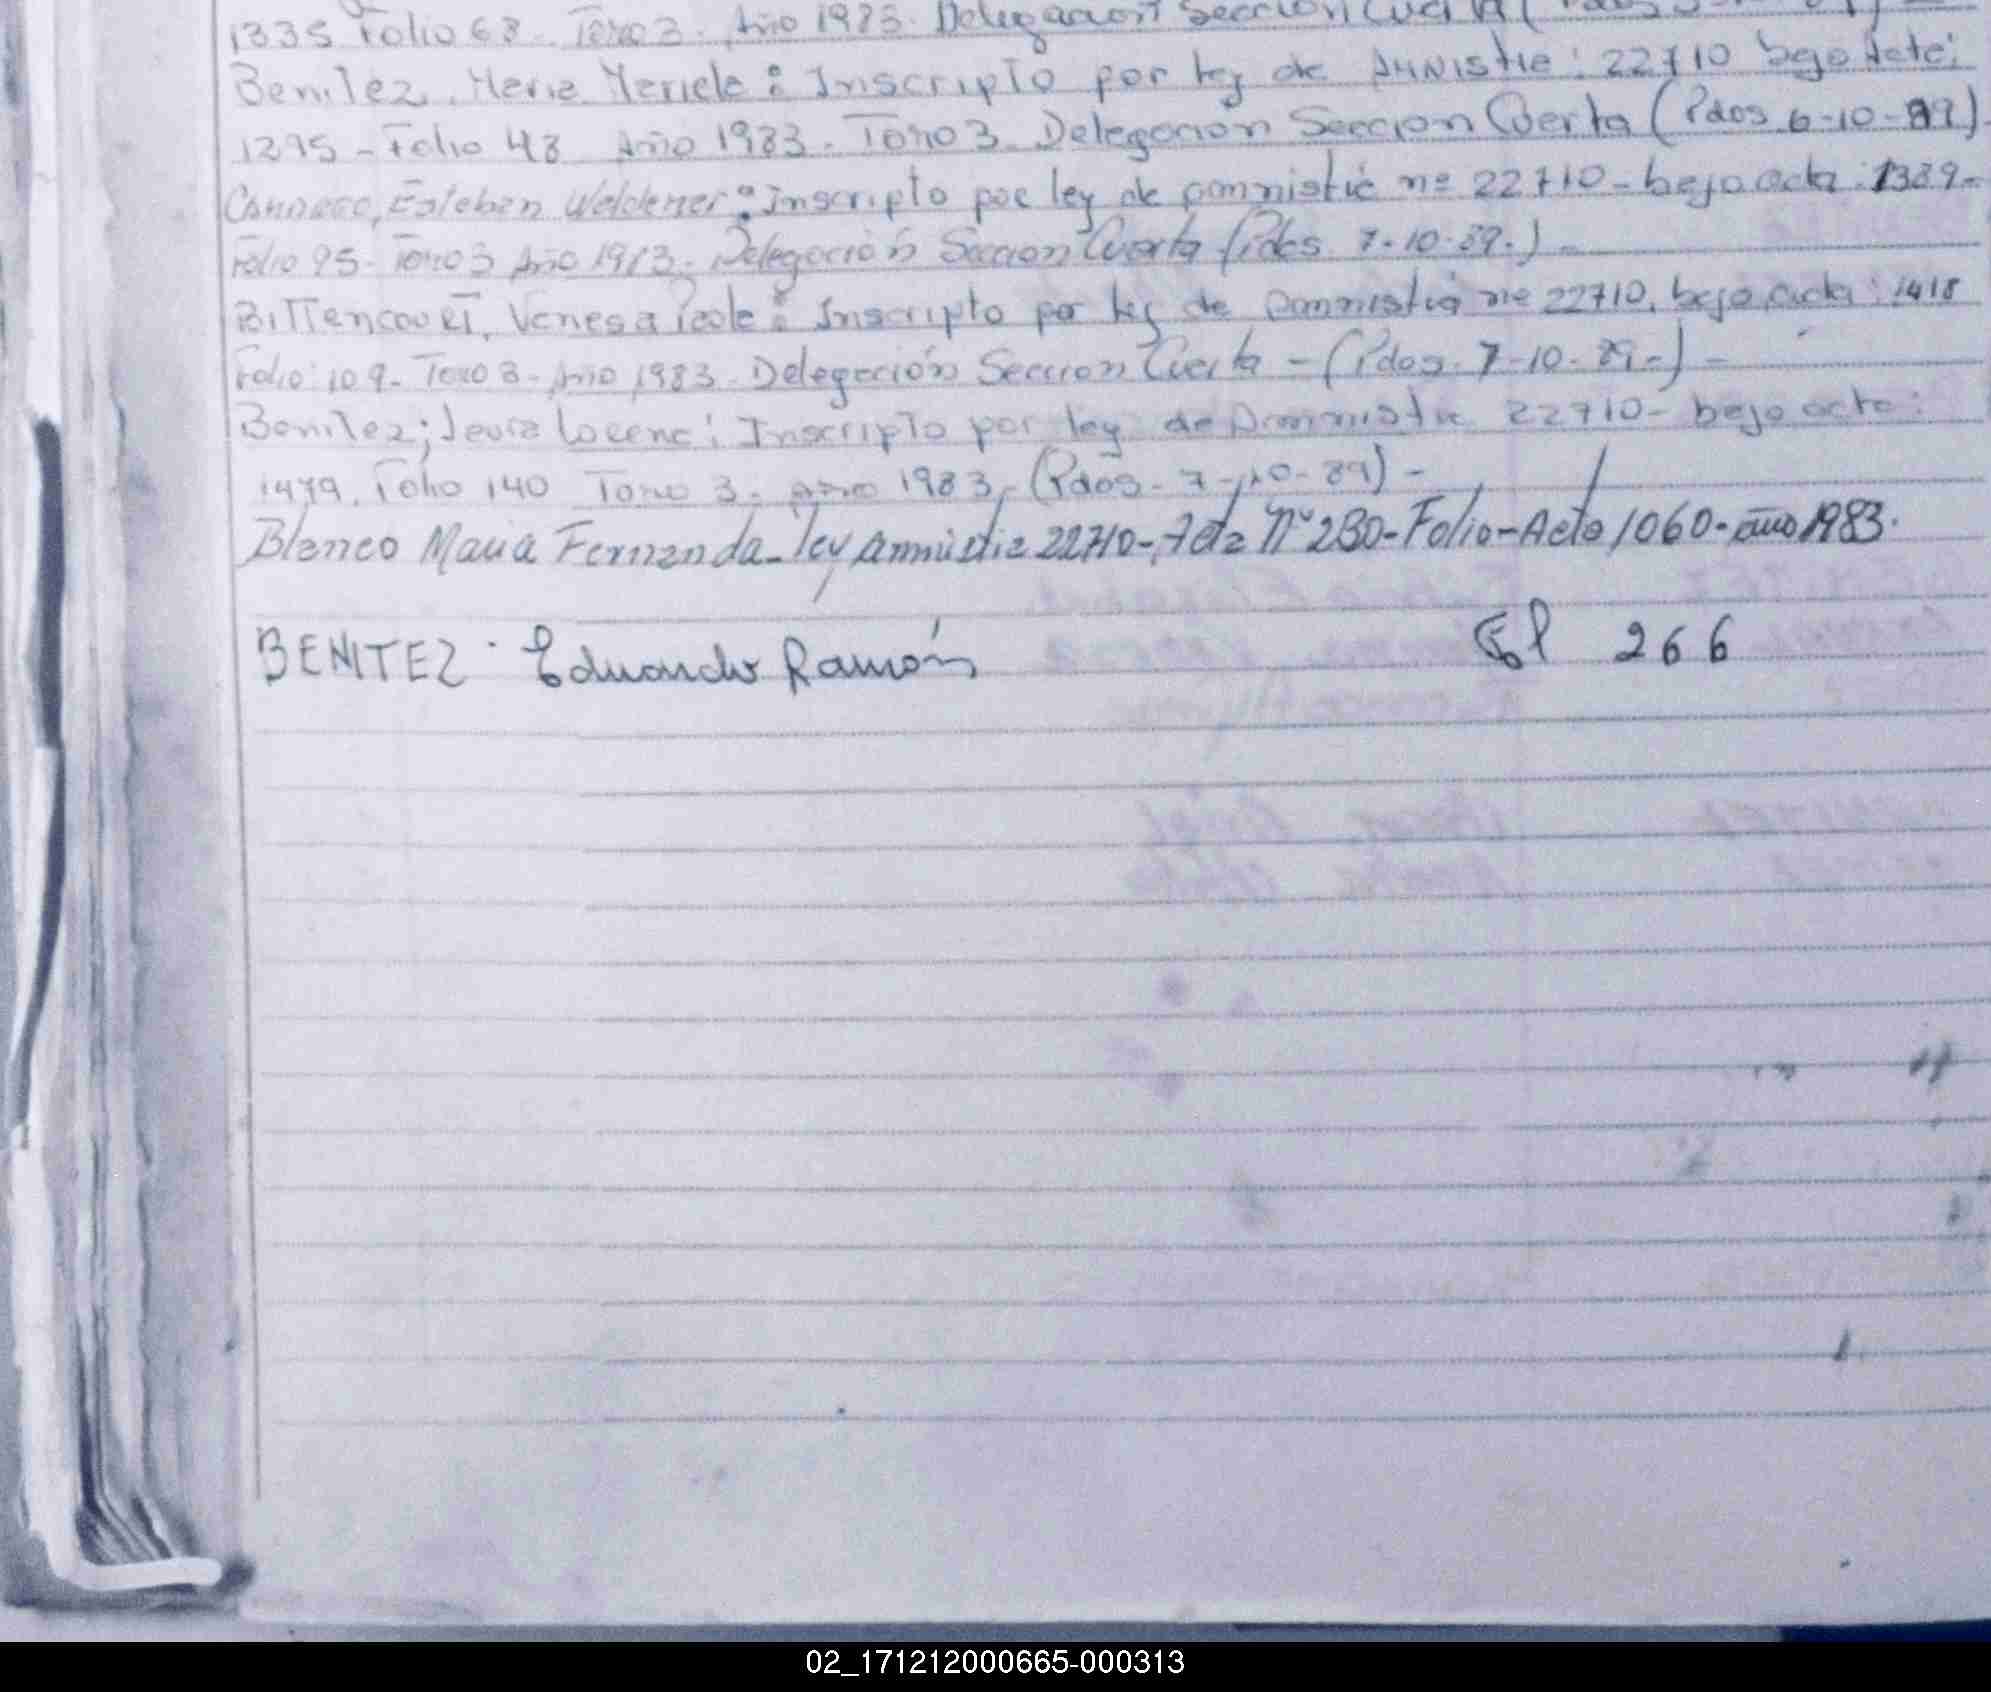 1335 Folio 68 - Tomo 3. Año 1983. Delegación Sección Cuarta (Pdos
Benitez, Maria Mariela: Inscripto por ley de Amnistia: 22710 bajo Acta:
1295 - Folio 48 Año 1983 - Tomo 3. Delegación Sección Cuarta (Pdos 6-10-89)
Esteban Waldemar: Inscripto por ley de ammistia nº 22710 - bajo acta: 1389-
Folio 95 - Tomo 3 Año 1983 - Delegación Sección Cuarta (Pdos. 7-10-89.) -
BITTencourt, Vanesa Paola: Inscripto por ley de ammistia nº 22710, bajo acta: 1418
Folio: 109 - Tomo 3 - Año 1983. Delegación Sección Cuarta - (Pdos. 7-10-89-) -
Benitez; Laura Lorena: Inscripto por ley de Ammistia 22710 - bajo acta:
1479. Folio 140 Tomo 3. Año 1983 - (Pdos - 7-10-89) -
Blanco Maria Fernanda - ley Amnistia 22710 - Acta Nº 280 - Folio - Acta 1060 - año 1983.
BENITEZ · Eduardo Ramón Fl 266
02_171212000665-000313